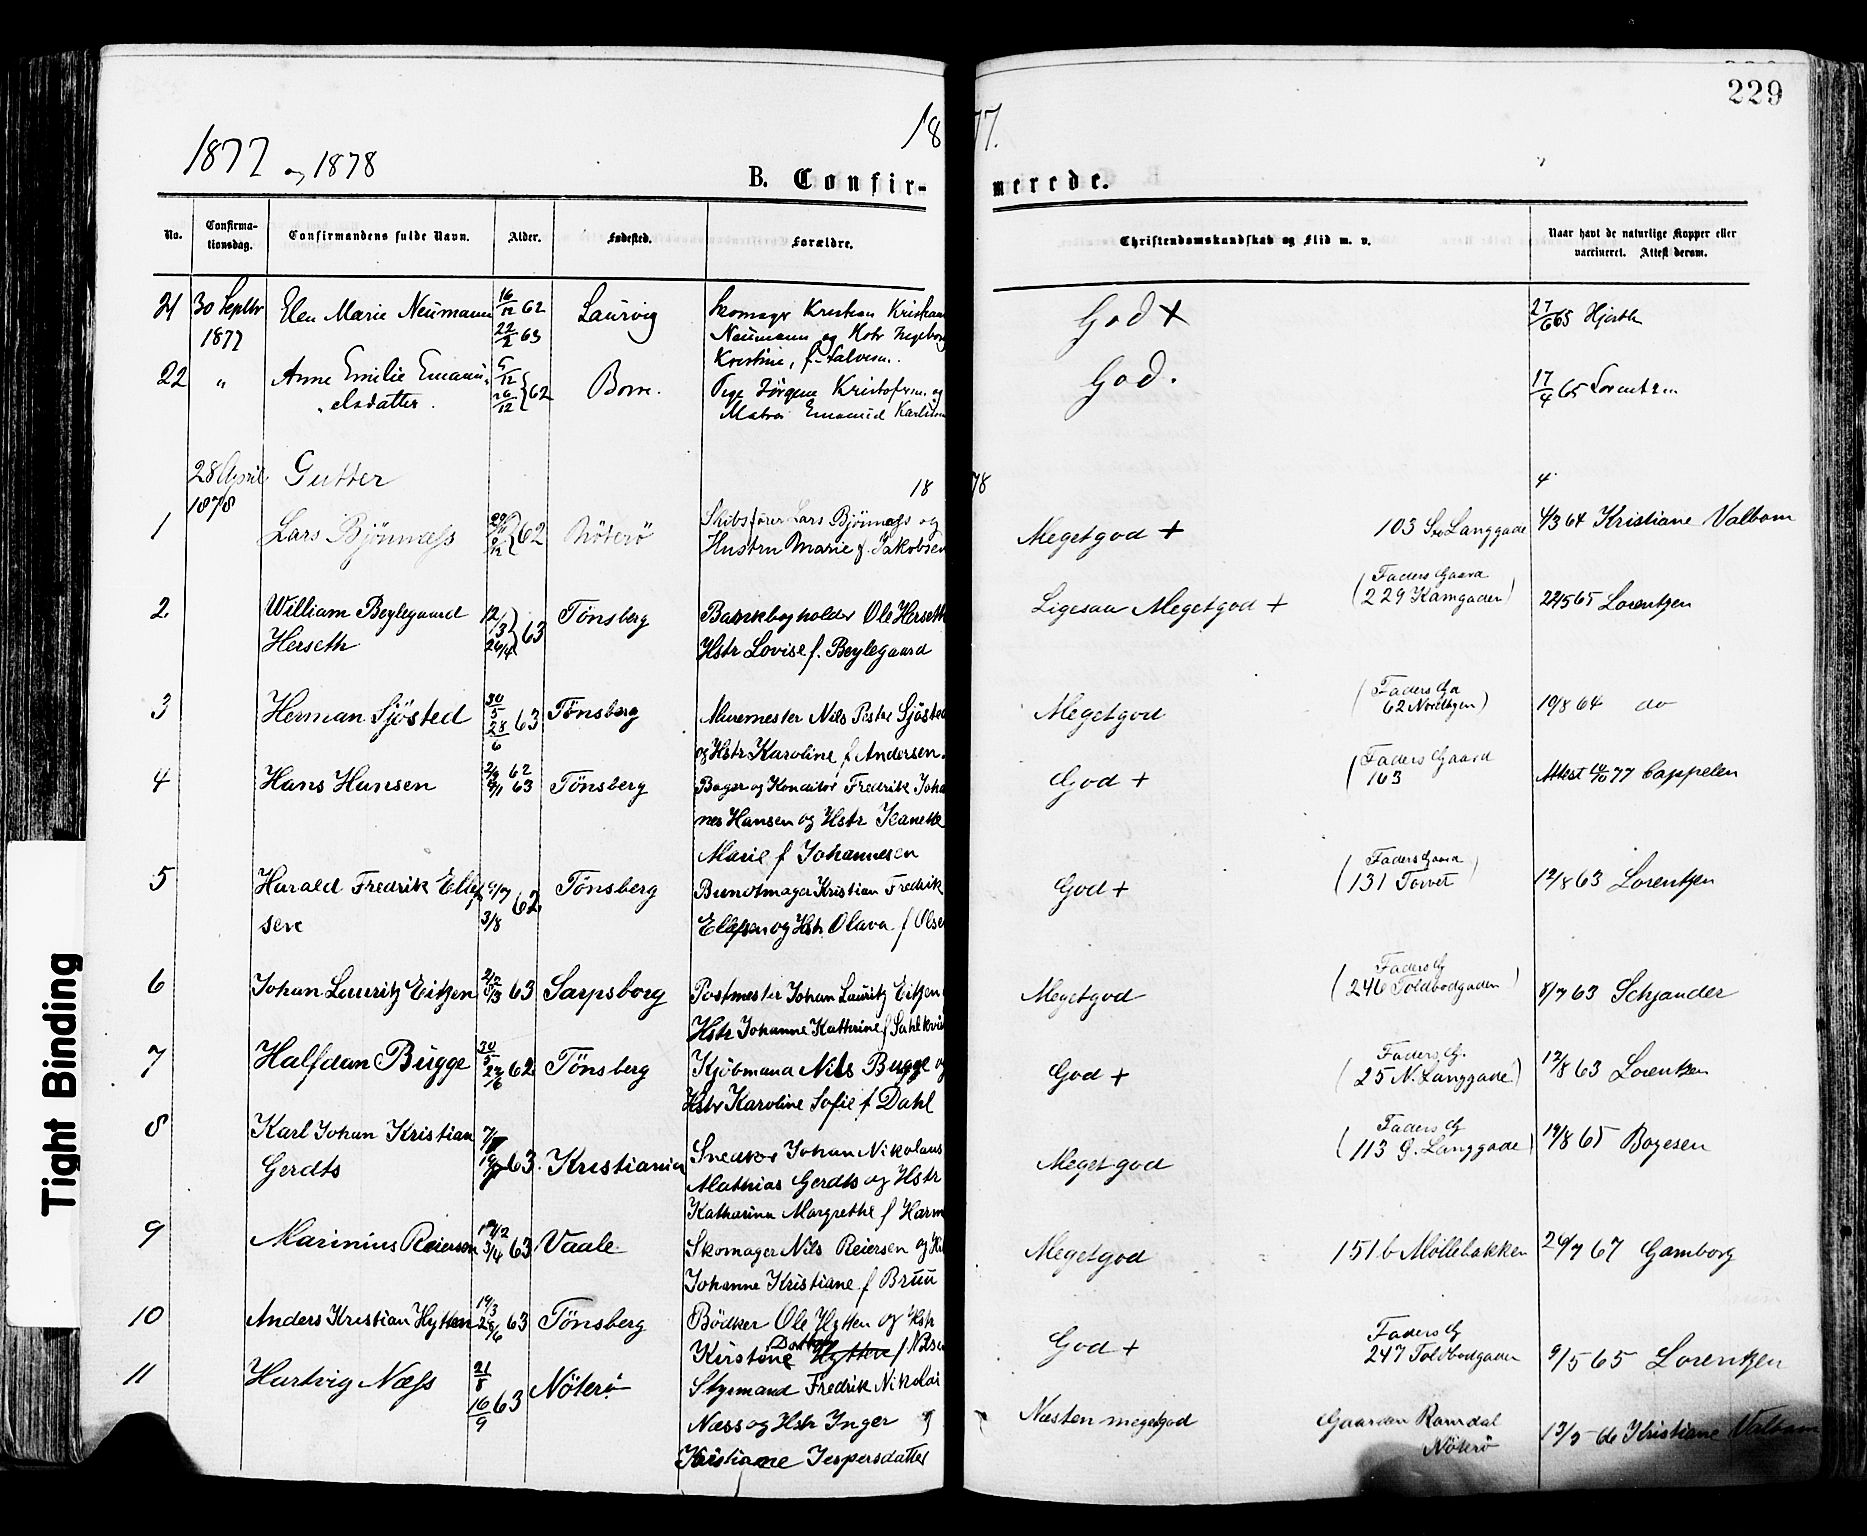 229
1877 og 1878
1877.
B. Confirmerede.
No. Confirmationsdag. Confirmandens fulde Navn. Alder. Fødested. Forældre. Christendomskundskab og Flid m. v. Naar havt de naturlige Kopper eller vaccineret. Attest derom.
21 30 Septbr 1877 Elen Marie Neumann 16/12 62 22/2 63 Laurvig
Skomager Kristian Kristian
Neumann og Kristine, f.
God + 27/6 65 Hjorth
22 " Anne Emilie Emanuelsdatter. 62 Borre.
Pige Jörgine Kristofersen og
Matros Emanuel Karlsen
God. 17/4 65 Lorentzen
28 April 1878 Gutter 1878
1 Lars Bjönnæss 62 Nöterö
Skibsfører Lars Bjönnæss og
Hustru Marie f. Jakobsen
Megetgod + 103 St. Langgade 4/3 64 Kristiane Valbom
2 William Beylegaard Herseth 12/3 26/4 63 Tönsberg
Bankbogholder Ole Herseth
Hstr Lovise f. Beylegaard
Ligesaa Megetgod + (Faders Gaard 229 Kamgaden) 24/5 65 Lorentzen
3 Herman Sjösted 30/5 28/6 63 Tönsberg
Muremester Nils Petre Sjösted
og Hstr Karoline f Andersen.
Megetgod (Faders Ga 62 Nordbyen) 19/8 64 do
4 Hans Hansen 62 63 Tönsberg
Bager og Konditor Fredrik Johannes
Hansen og Hstr Jeanette
Marie f Johannesen
God + (Faders Gaard 163 Attest 77 Cappelen
5 Harald Fredrik Ellefsen 9/7 3/8 62 Tönsberg
Bundtmager Kristian Fredrik
Ellefsen og Hstr. Olava f Olse
God + (Faders Gaard 131 Torvet) 12/8 63 Lorentzen
6 Johan Lauritz Eitzen 63 Sarpsborg
Postmester Johan Lauritz Eitzen
Hstr Johanne Kathrine f Sahlkvis
Megetgod (Faders G 246 Toldbodgaden) 8/7 63 Schjander
7 Halfdan Bugge 30/5 62 Tönsberg
Kjöbmand Nils Bugge og
Hstr Karoline Sofie f Dahl
God + (Faders G. 25 N. Langgade) 12/8 63 Lorentzen
8 Karl Johan Kristian Gerdts 63. Kristiania
Snedker Johan Nikolaus
Mathias Gerdts og Hstr
Katharina Margrethe f Harm
Megetgod (Faders G 113 G. Langgade) 14/8 65 Bogesen
9 Marinius Reiersen 3/4 63 Vaale
Skomager Nils Reiersen og H
Johanne Kristiane f Bruu
Megetgod 151 b Möllebakken 26/7 67 Gamborg
10 Anders Kristian Hytten 14/3 63 Tönsberg
Bödker Ole Hytten og Hstr
Kirstine f Nilsen
God + Faders G 247 Toldbodgaden 9/5 65 Lorentzen
11 Hartvig Næss 21/8 16/9 63 Nöterö
Styrmand Fredrik Nikolai
Næss og Hstr Inger
Kristiane Jespersdatter
Næsten megetgod Gaarden Ramdal Nöterö 13/5 Kristiane Valbom
Tight Binding